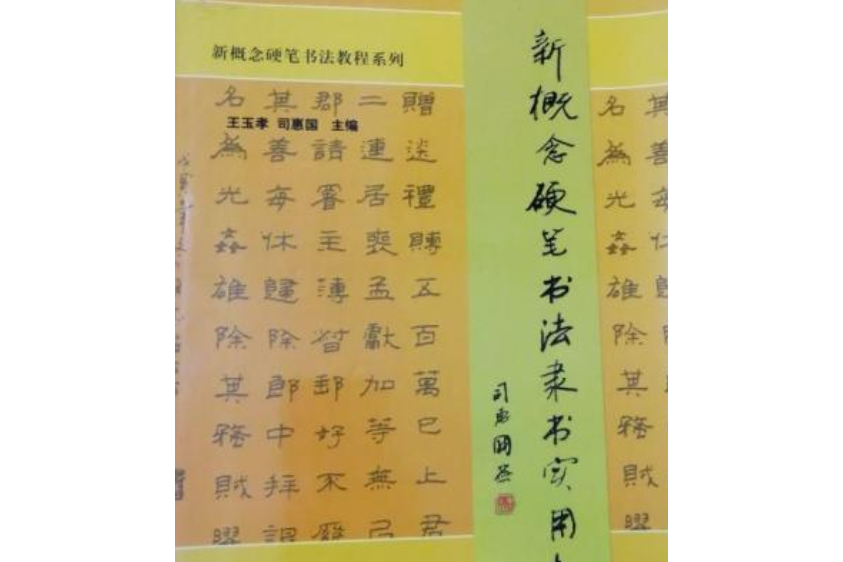 新概念硬笔书法教程系列
王玉孝 司惠国 主编
新概念硬笔书法隶书实用
司惠国
贈送禮賻五百萬已上君
二連居喪孟獻加等無
郡請署主簿督郵好不
其善每休歸除郎中拜
名為光姦雄除其務賊曜
名為光姦雄除其務賊曜